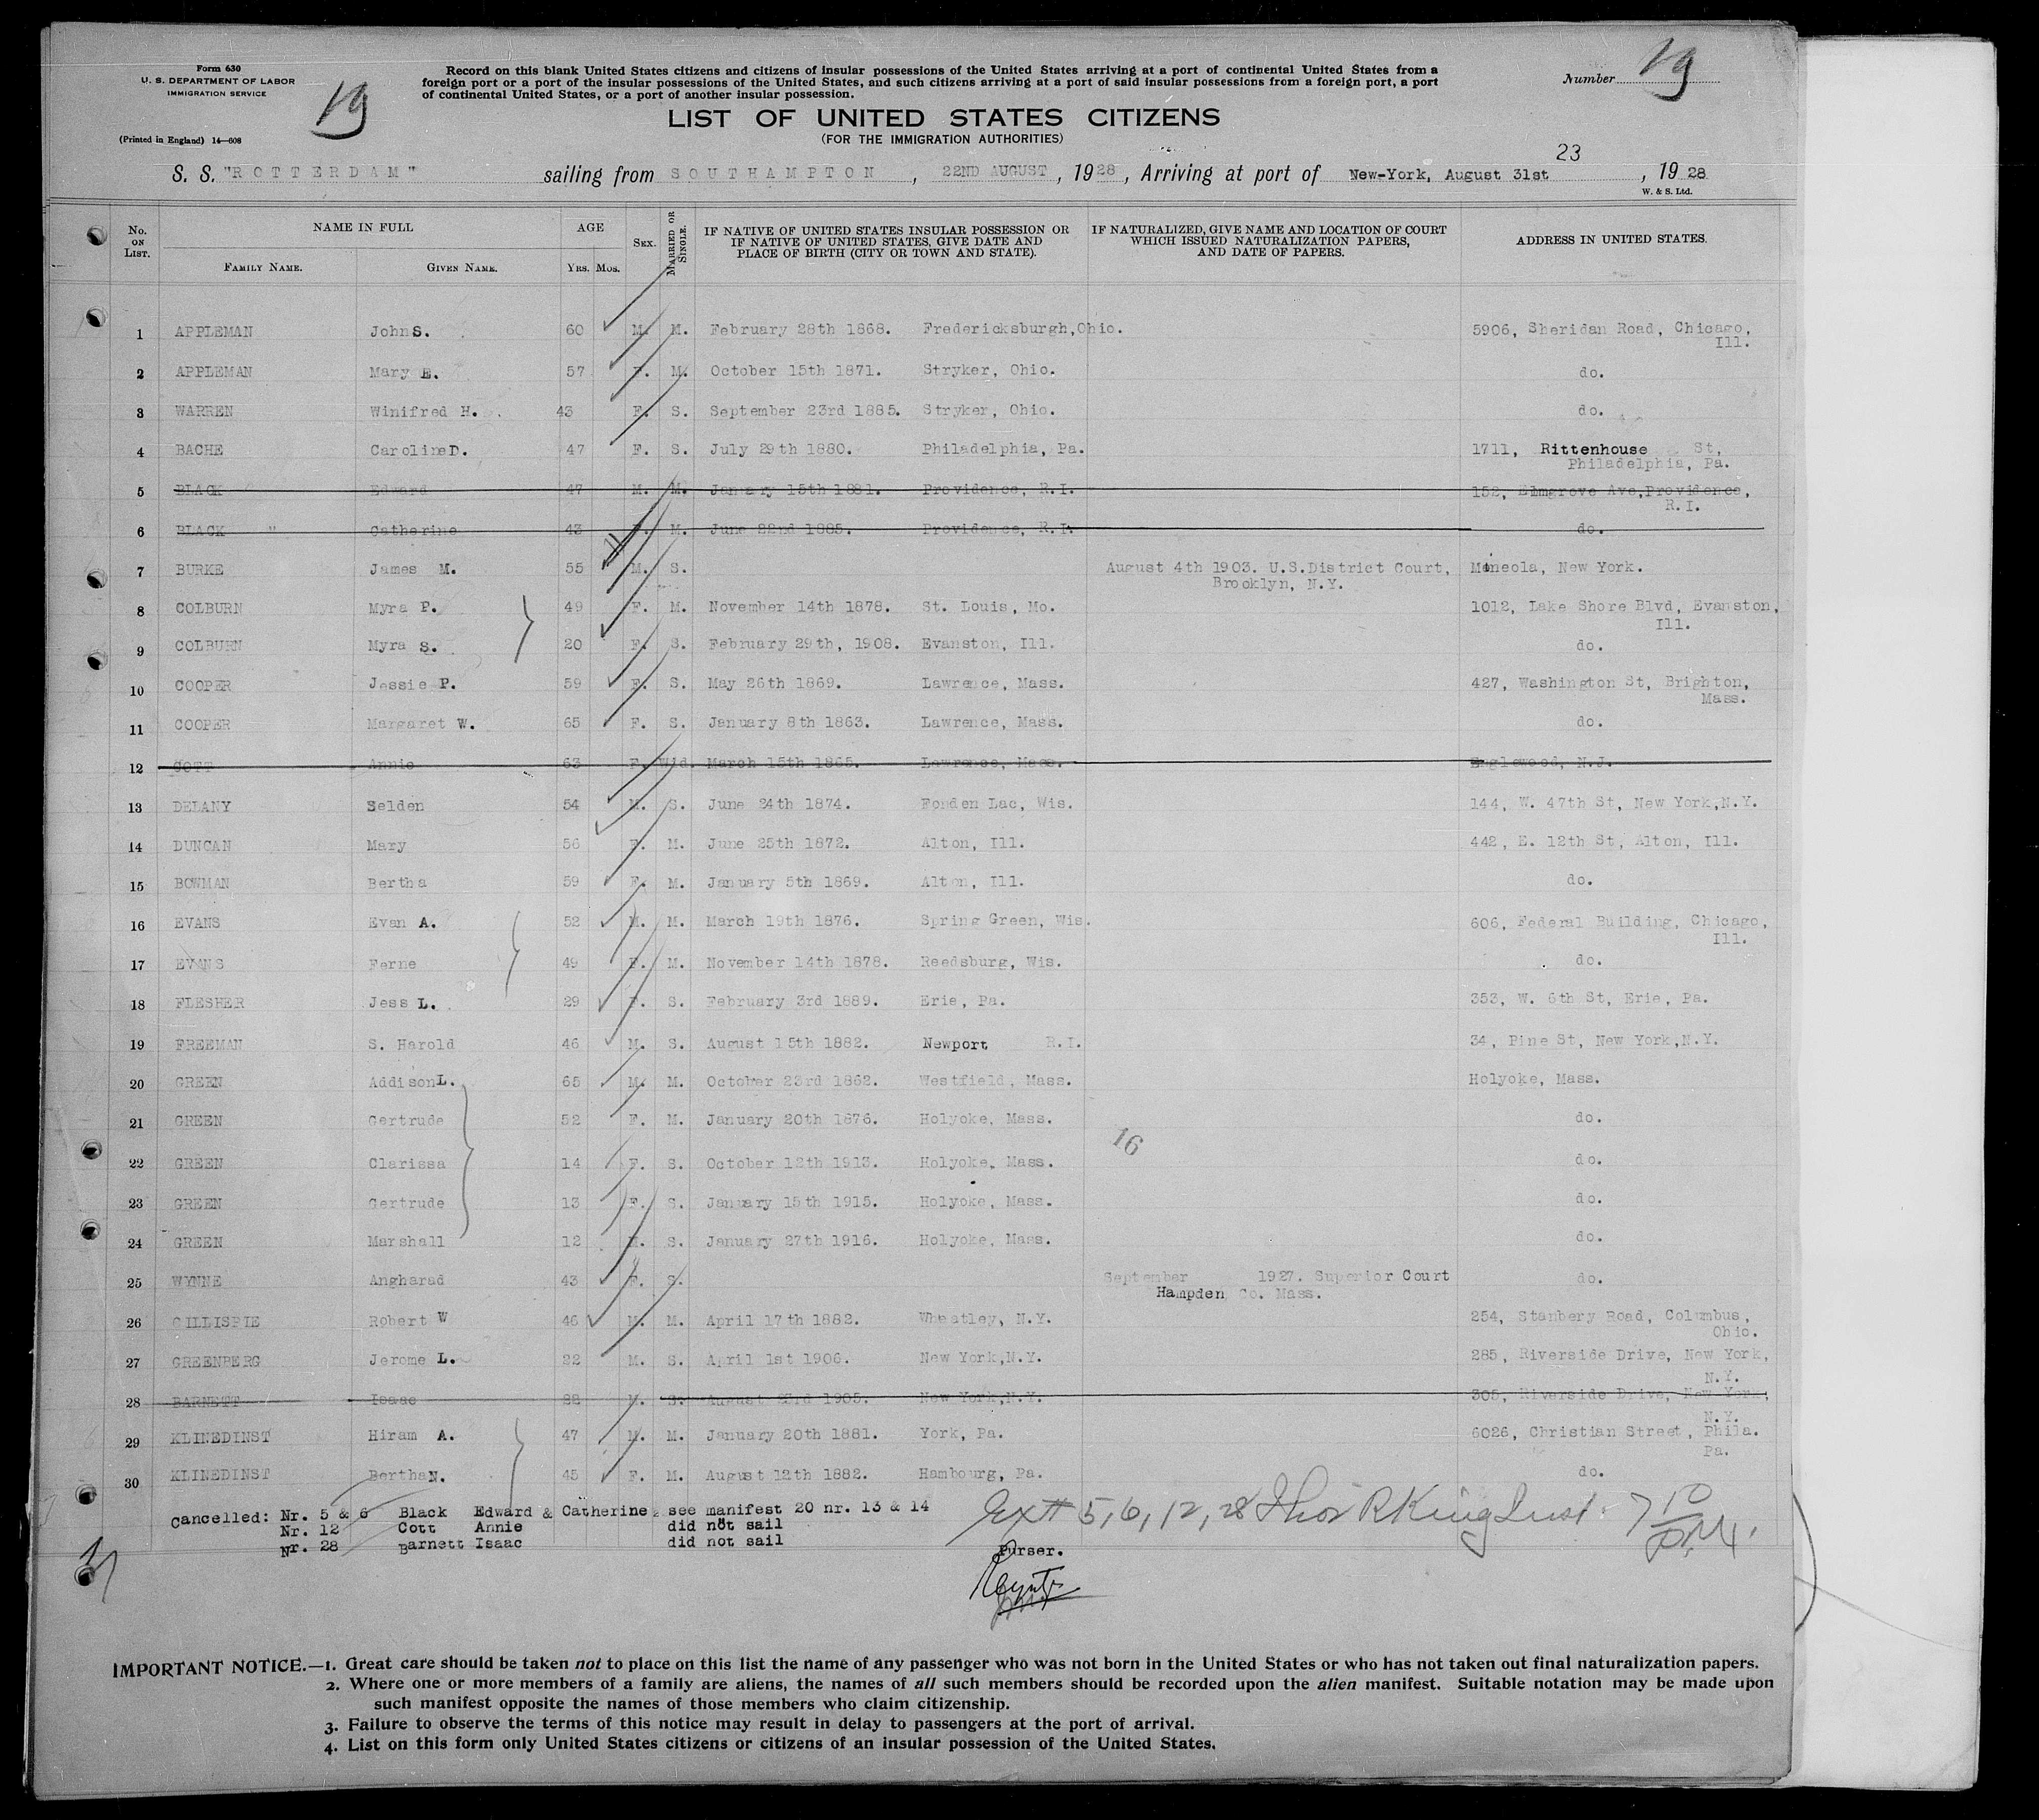 Form 630
U. S. DEPARTMENT OF LABOR
IMMIGRATION SERVICE
(Printed in England) 14—608
19
Record on this blank United States citizens and citizens of insular possessions of the United States arriving at a port of continental United States from a
foreign port or a port of the insular possessions of the United States, and such citizens arriving at a port of said insular possessions from a foreign port, a port
of continental United States, or a port of another insular possession.
Number 19
LIST OF UNITED STATES CITIZENS
(FOR THE IMMIGRATION AUTHORITIES)
23
S. S. "ROTTERDAM" sailing from SOUTHAMPTON, 22ND AUGUST, 1928, Arriving at port of New-York, August 31st, 1928
W. & S. Ltd.
No. ON LIST. NAME IN FULL AGE SEX. MARRIED OR SINGLE. IF NATIVE OF UNITED STATES INSULAR POSSESSION OR IF NATIVE OF UNITED STATES, GIVE DATE AND PLACE OF BIRTH (CITY OR TOWN AND STATE). IF NATURALIZED, GIVE NAME AND LOCATION OF COURT WHICH ISSUED NATURALIZATION PAPERS, AND DATE OF PAPERS. ADDRESS IN UNITED STATES.
FAMILY NAME. GIVEN NAME. YRS. MOS.
1 APPLEMAN John S. 60 M. M. February 28th 1868. Fredericksburgh, Ohio. 5906, Sheridan Road, Chicago,
Ill.
2 APPLEMAN Mary E. 57 F. M. October 15th 1871. Stryker, Ohio. do.
3 WARREN Winifred H. 43 F. S. September 23rd 1885. Stryker, Ohio. do.
4 BACHE Caroline D. 47 F. S. July 29th 1880. Philadelphia, Pa. 1711, Rittenhouse St,
Philadelphia, Pa.
5 BLACK Edward 47 M. M. January 15th 1881. Providence, R.I. 152, Elmgrove Ave, Providence,
R.I.
6 BLACK " Catherine 43 F. M. June 22nd 1885. Providence, R.I. do.
7 BURKE James M. 55 M. S. August 4th 1903. U.S.District Court, Mineola, New York.
Brooklyn, N.Y.
8 COLBURN Myra P. 49 F. M. November 14th 1878. St. Louis, Mo. 1012, Lake Shore Blvd, Evanston,
Ill.
9 COLBURN Myra S. 20 F. S. February 29th, 1908. Evanston, Ill. do.
10 COOPER Jessie P. 59 F. S. May 26th 1869. Lawrence, Mass. 427, Washington St, Brighton,
Mass.
11 COOPER Margaret W. 65 F. S. January 8th 1863. Lawrence, Mass. do.
12 COTT Annie 63 F. Wid. March 15th 1865. Lawrence, Mass. Englewood, N.J.
13 DELANY Selden 54 M. S. June 24th 1874. Fonden Lac, Wis. 144, W. 47th St, New York,N.Y.
14 DUNCAN Mary 56 F. M. June 25th 1872. Alton, Ill. 442, E. 12th St, Alton, Ill.
15 BOWMAN Bertha 59 F. M. January 5th 1869. Alton, Ill. do.
16 EVANS Evan A. 52 M. M. March 19th 1876. Spring Green, Wis. 606, Federal Building, Chicago,
Ill.
17 EVANS Ferne 49 F. M. November 14th 1878. Reedsburg, Wis. do.
18 FLESHER Jess L. 29 F. S. February 3rd 1889. Erie, Pa. 353, W. 6th St, Erie, Pa.
19 FREEMAN S. Harold 46 M. S. August 15th 1882. Newport R.I. 34, Pine St, New York,N.Y.
20 GREEN Addison L. 65 M. M. October 23rd 1862. Westfield, Mass. Holyoke, Mass.
21 GREEN Gertrude 52 F. M. January 20th 1876. Holyoke, Mass. do.
16
22 GREEN Clarissa 14 F. S. October 12th 1913. Holyoke, Mass. do.
23 GREEN Gertrude 13 F. S. January 15th 1915. Holyoke, Mass. do.
24 GREEN Marshall 12 M. S. January 27th 1916. Holyoke, Mass. do.
25 WYNNE Angharad 43 F. S. September 1927. Superior Court do.
Hampden Co. Mass.
26 GILLISPIE Robert W 46 M. M. April 17th 1882. Wheatley, N.Y. 254, Stanbery Road, Columbus,
Ohio.
27 GREENBERG Jerome L. 22 M. S. April 1st 1906. New York,N.Y. 285, Riverside Drive, New York,
N.Y.
28 BARNETT Isaac 22 M. S. August 23rd 1905. New York,N.Y. 305, Riverside Drive, New York,
N.Y.
29 KLINEDINST Hiram A. 47 M. M. January 20th 1881. York, Pa. 6026, Christian Street, Phila.
Pa.
30 KLINEDINST Bertha N. 45 F. M. August 12th 1882. Hambourg, Pa. do.
Cancelled: Nr. 5 & 6 Black Edward & Catherine see manifest 20 nr. 13 & 14
Nr. 12 Cott Annie did not sail
Nr. 28 Barnett Isaac did not sail
Ex# 5,6,12,28 Thos R King Insp. 7 10 P.M.
Purser.
IMPORTANT NOTICE.—1. Great care should be taken not to place on this list the name of any passenger who was not born in the United States or who has not taken out final naturalization papers.
2. Where one or more members of a family are aliens, the names of all such members should be recorded upon the alien manifest. Suitable notation may be made upon
such manifest opposite the names of those members who claim citizenship.
3. Failure to observe the terms of this notice may result in delay to passengers at the port of arrival.
4. List on this form only United States citizens or citizens of an insular possession of the United States.